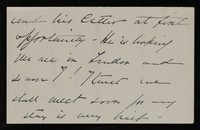 and his letter at first
opportunity - He is hoping
we are in London and
so am I! I trust we
shall meet soon for my
stay is very brief -